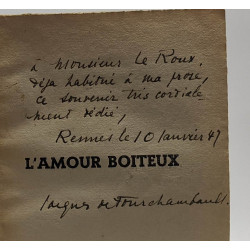 à Monsieur Le Roux,
déja habitué à ma prose,
ce souvenir très cordiale-
ment dédié,
Rennes le 10 Janvier 47
L'AMOUR BOITEUX
Jacques de Fourchambault.